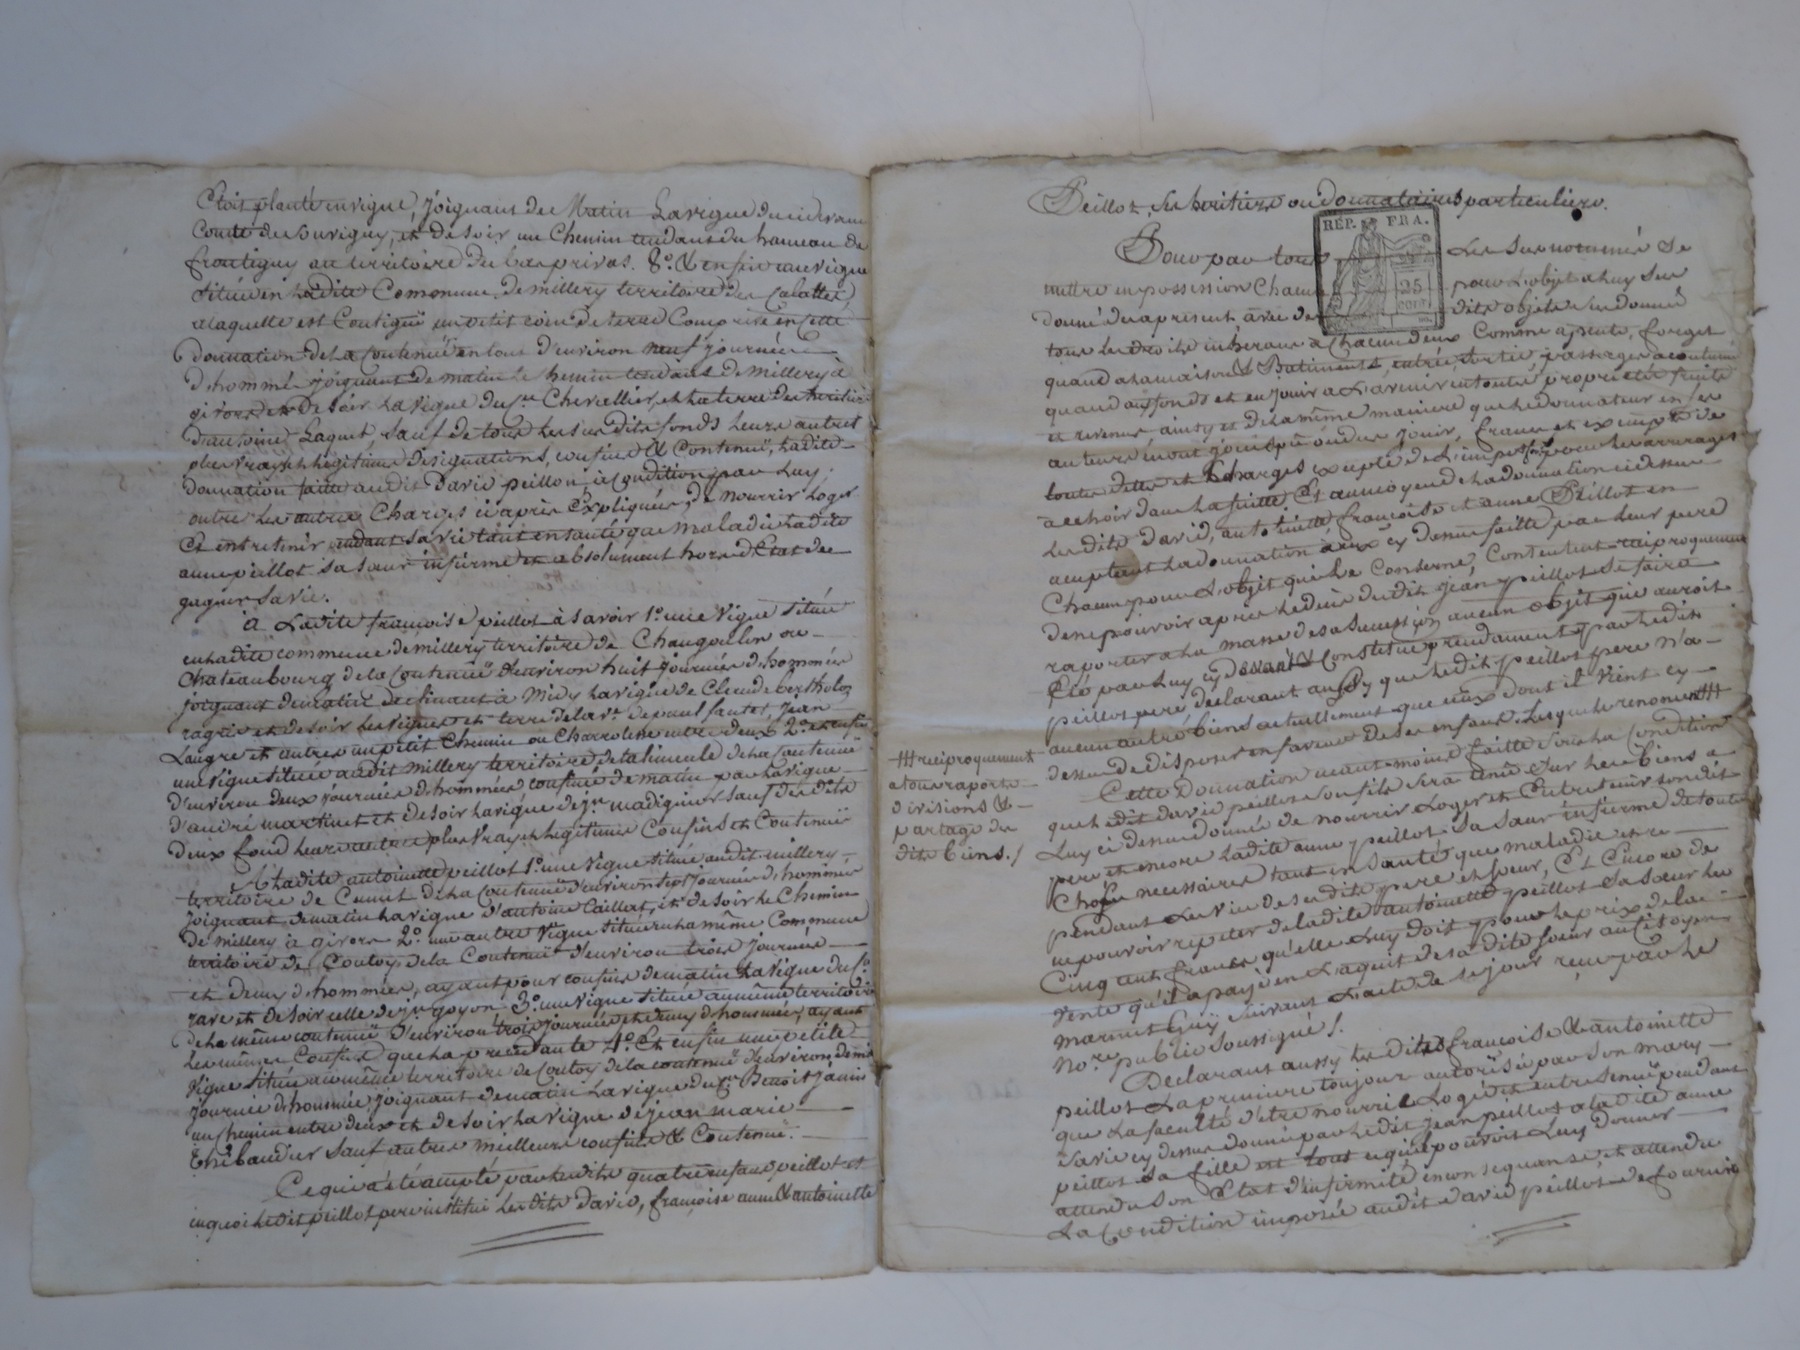 Etoit planté en vigne, joignant de Matin La vigne du cidevant
Comte de Souvigny, et de soir un Chemin tendant du hameau de
frontigny au territoire du bas privas. 8.º & enfin une vigne
située en Ladite Commune de millery territoire des Calattes,
a laquelle est Contiguë un petit coin de terre Comprise en cette
donnation de La Contenuë en tout d'environ neuf journées
d'hommée joignant de matin Le Chemin tendant de Millery à
givors et de Soir La vigne du Cen Chevellier, et La terre des heritiers
d'antoine Laquet, sauf de tous Les sus dits fonds Leurs autres
plus vrays et Légitimes designations, confins & Contenuë, Ladite
donnation faitte audit David peillon, à Condition par Luy
outre Les autres Charges ci après Expliquées, de nourrir Loger
Et entretenir, pendant sa vie tant en santé que maladie Ladite
anne peillot sa sœur infirme et absolument hors d'Etat de
gagner sa vie.
à Ladite françoise peillot à savoir 1.º une vigne située
en Ladite commune de millery territoire de Changoulin ou
Chateaubourg de la Contenuë d'environ huit journées d'hommée
joignant de matin declinant à Midy La vigne de Claude bertholon
et de soir Les vignes et terre de la ve. de paul fautes, jean
Laugre et autres un petit Chemin ou Charroliere entre deux 2.º et enfin
une vigne située audit Millery territoire de la de la Contenuë
d'environ deux journées d'hommée, confinée de matin par La vigne
d'andré martinet et de soir La vigne de jn. madiginier sauf des dits
deux fond Leurs autres plus vrays et Légitimes Confins et Contenuë
A Ladite antoinette peillot 1.º une vigne située audit millery
territoire de de La Contenuë d'environ sept journées d'hommée
joignant de matin La vigne d'antoine Caillat, et de soir Le Chemin
de millery à givors 2.º une autre vigne située en La même Commune
territoire de Coutoy de la Contenuë d'environ trois journées
et demy d'hommée, ayant pour confins de matin La vigne du Cen
jare et de soir celle de jn. goyon 3.º une vigne située au même territoire
de La même contenuë d'environ trois journées et demy d'hommée, ayant
Les mêmes Confins que La precedante 4.º Et enfin une petite
vigne située au même territoire de Coutoy de la contenuë d'environ demie
journée d'hommée joignant de matin La vigne du Cen Benoit jamin
un chemin entre deux et de soir La vigne de jean marie
Thibaudier sauf autres meilleurs confins & Contenuë.
Ce qui a été accepté par Lesdits quatre enfans peillot et
en quoi Ledit peillot pere institue Lesdits David, françoise anne & antoinette
Peillot, ses heritiers ou donnataires particuliers.
RÉP. FRA.
25
CENT.
Pour par tous Les susnommés se
mettre en possession Chacun pour L'objet a Luy sus
donné des a present avec des dits objets sus donnés
tous Les droits inherans a Chacun d'eux Comme aisances, forgets
quand a La maison & Batiments, entrée, sortie, passages acoutumés
quand au fonds et en jouir a L'avenir en toute proprieté fruits
et revenus ainsy et de La même maniere que Le donnateur et ses
auteurs en ont joui pû ou dû jouir, francs et exempts de
toutes dettes et Charges excepté de L'impost pour Les arrerages
a echoir dans La suitte. Et au moyen de La donnation ci dessus
Lesdits david, antoinette, françoise et anne Peillot en
acceptant La donnation a eux cy dessus faitte par Leur pere
Chacun pour L'objet qui Le Conserne, Consentent reciproquement
de ne pouvoir apres Le deces dudit jean peillot se faire
raporter a La masse de sa sucession aucun objet qui auroit
été par Luy cy devant Constitué prendament par Ledit
peillot pere declarant aussy que Ledit peillot pere n'a
aucun autre biens actuellement que ceux dont il vient cy
dessus de disposer en faveur de ses enfans. Lesquels renoncent ++++
++++ reciproquement
a tous raports
divisions &
partage des
dits biens./
Cette Donnation neant moins faitte sous La Condition
que Ledit david peillot son fils sera tenu sur Les biens a
Luy ci dessus donnés de nourrir Loger et Entretenir sondit
pere et encore Ladite anne peillot sa sœur infirme de toutes
Choses necessaires tant en santé que maladie et ce
pendant La vie de sesdits pere et sœur, Et Encore de
ne pouvoir repeter de ladite antoinette peillot sa sœur Les
Cinq cent francs qu'elle Luy doit pour Le prix de la
vente qu'il a payé en L'aquit de sadite sœur au Citoyen
marinet Guy suivant L'acte de ce jour reçu par Le
No.re public soussigné /.
Declarant aussy Lesdites françoise & antoinette
peillot La premiere toujours autorisée par son mary
que La faculté d'etre nourrie Logé et entretenuë pendant
sa vie cy dessus donné par Ledit jean peillot a Ladite anne
peillot sa fille est tout ce qu'il pouvoit Luy donner
attendu son Etat d'infirmité en consequanse, et attendu
La Condition imposée audit david peillot de fournir